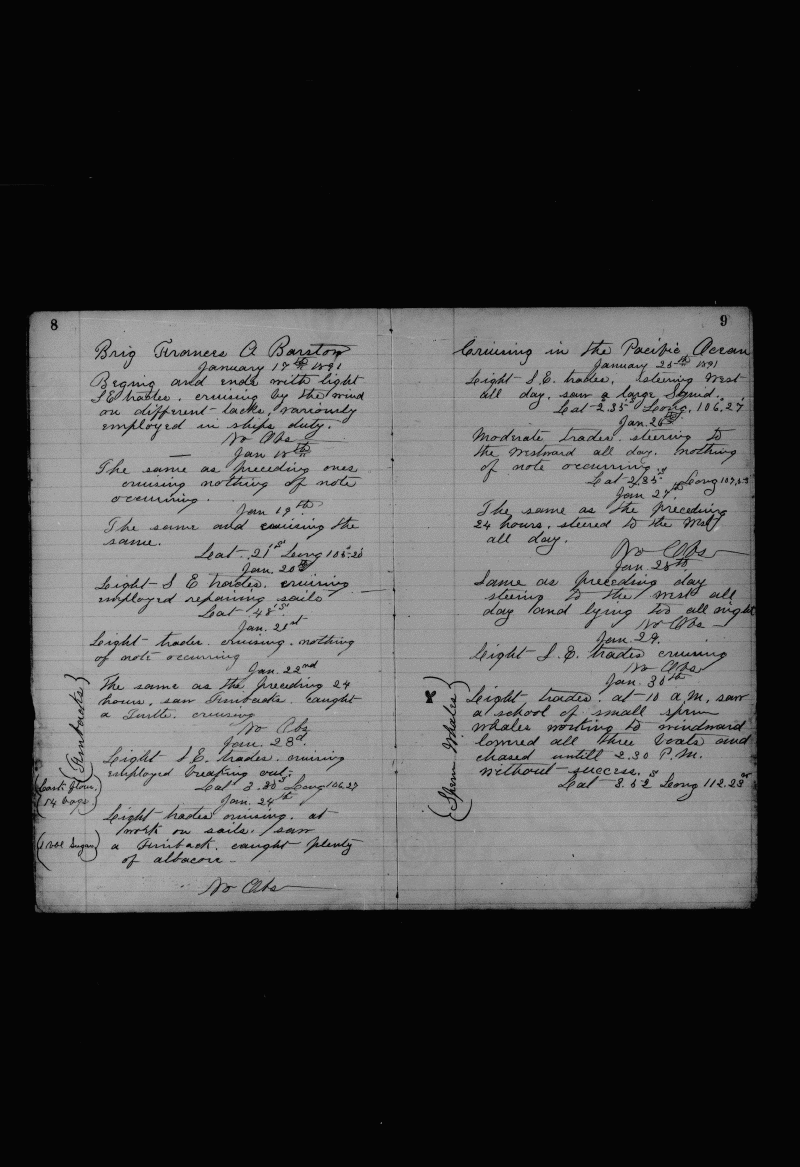 8
Brig Frances A Barstow
January 17th 1891
Begins and ends with light
S E trades. cruising by the wind
on different tacks, variously
employed in ships duty.
No Obs
Jan 18th
The same as preceding ones
cruising nothing of note
occurring.
Jan 19th
The same and cruising the
same.
Lat. 21' S Long 105.20
Jan. 20th
Light S E trades. cruising
employed repairing sails
Lat 48' S.
Jan. 21st
Light trades. cruising. nothing
of note occurring
Jan. 22nd
The same as the preceding 24
hours, saw Finbacks. caught
a Turtle. cruising
(Finbacks)
No Obs
Jan. 23d.
Light S E. trades. cruising
employed breaking out.
Lat 3.20 S Long 106.27
(Cask flour,
54 bags)
Jan. 24th
Light trades cruising. at
work on sails. saw
a Finback. caught plenty
of albacore
(1 bbl Sugar)
No Obs
9
Cruising in the Pacific Ocean
January 25th 1891
Light S.E. trades, steering West
all day, saw a large Squid.
Lat 2.35 S Long. 106.27
Jan. 26th
Moderate trades. steering to
the westward all day. nothing
of note occurring.
Lat 2.35 S Long 107.53
Jan 27th
The same as the preceding
24 hours. steered to the West
all day.
No Obs
Jan. 28th
Same as preceding day
steering to the west all
day and lying too all night
No Obs
Jan 29.
Light S.E. trades cruising
No Obs
Jan. 30th
Light trades. at 10 A.M. saw
a school of small sperm
whales working to windward
lowered all three boats and
chased untill 2.30 P.M.
without success.
Lat 3.52 S Long 112.23 W
(Sperm Whales)